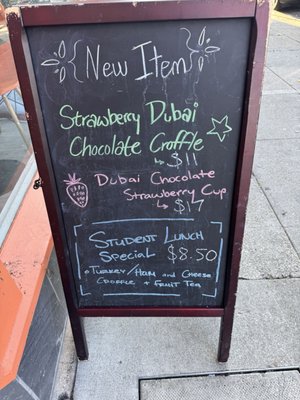 {New Item}
Strawberry Dubai
Chocolate Croffle
$11
Dubai Chocolate
Strawberry Cup
$17
Student Lunch
Special $8.50
Turkey/Ham and Cheese
Croffle + Fruit Tea